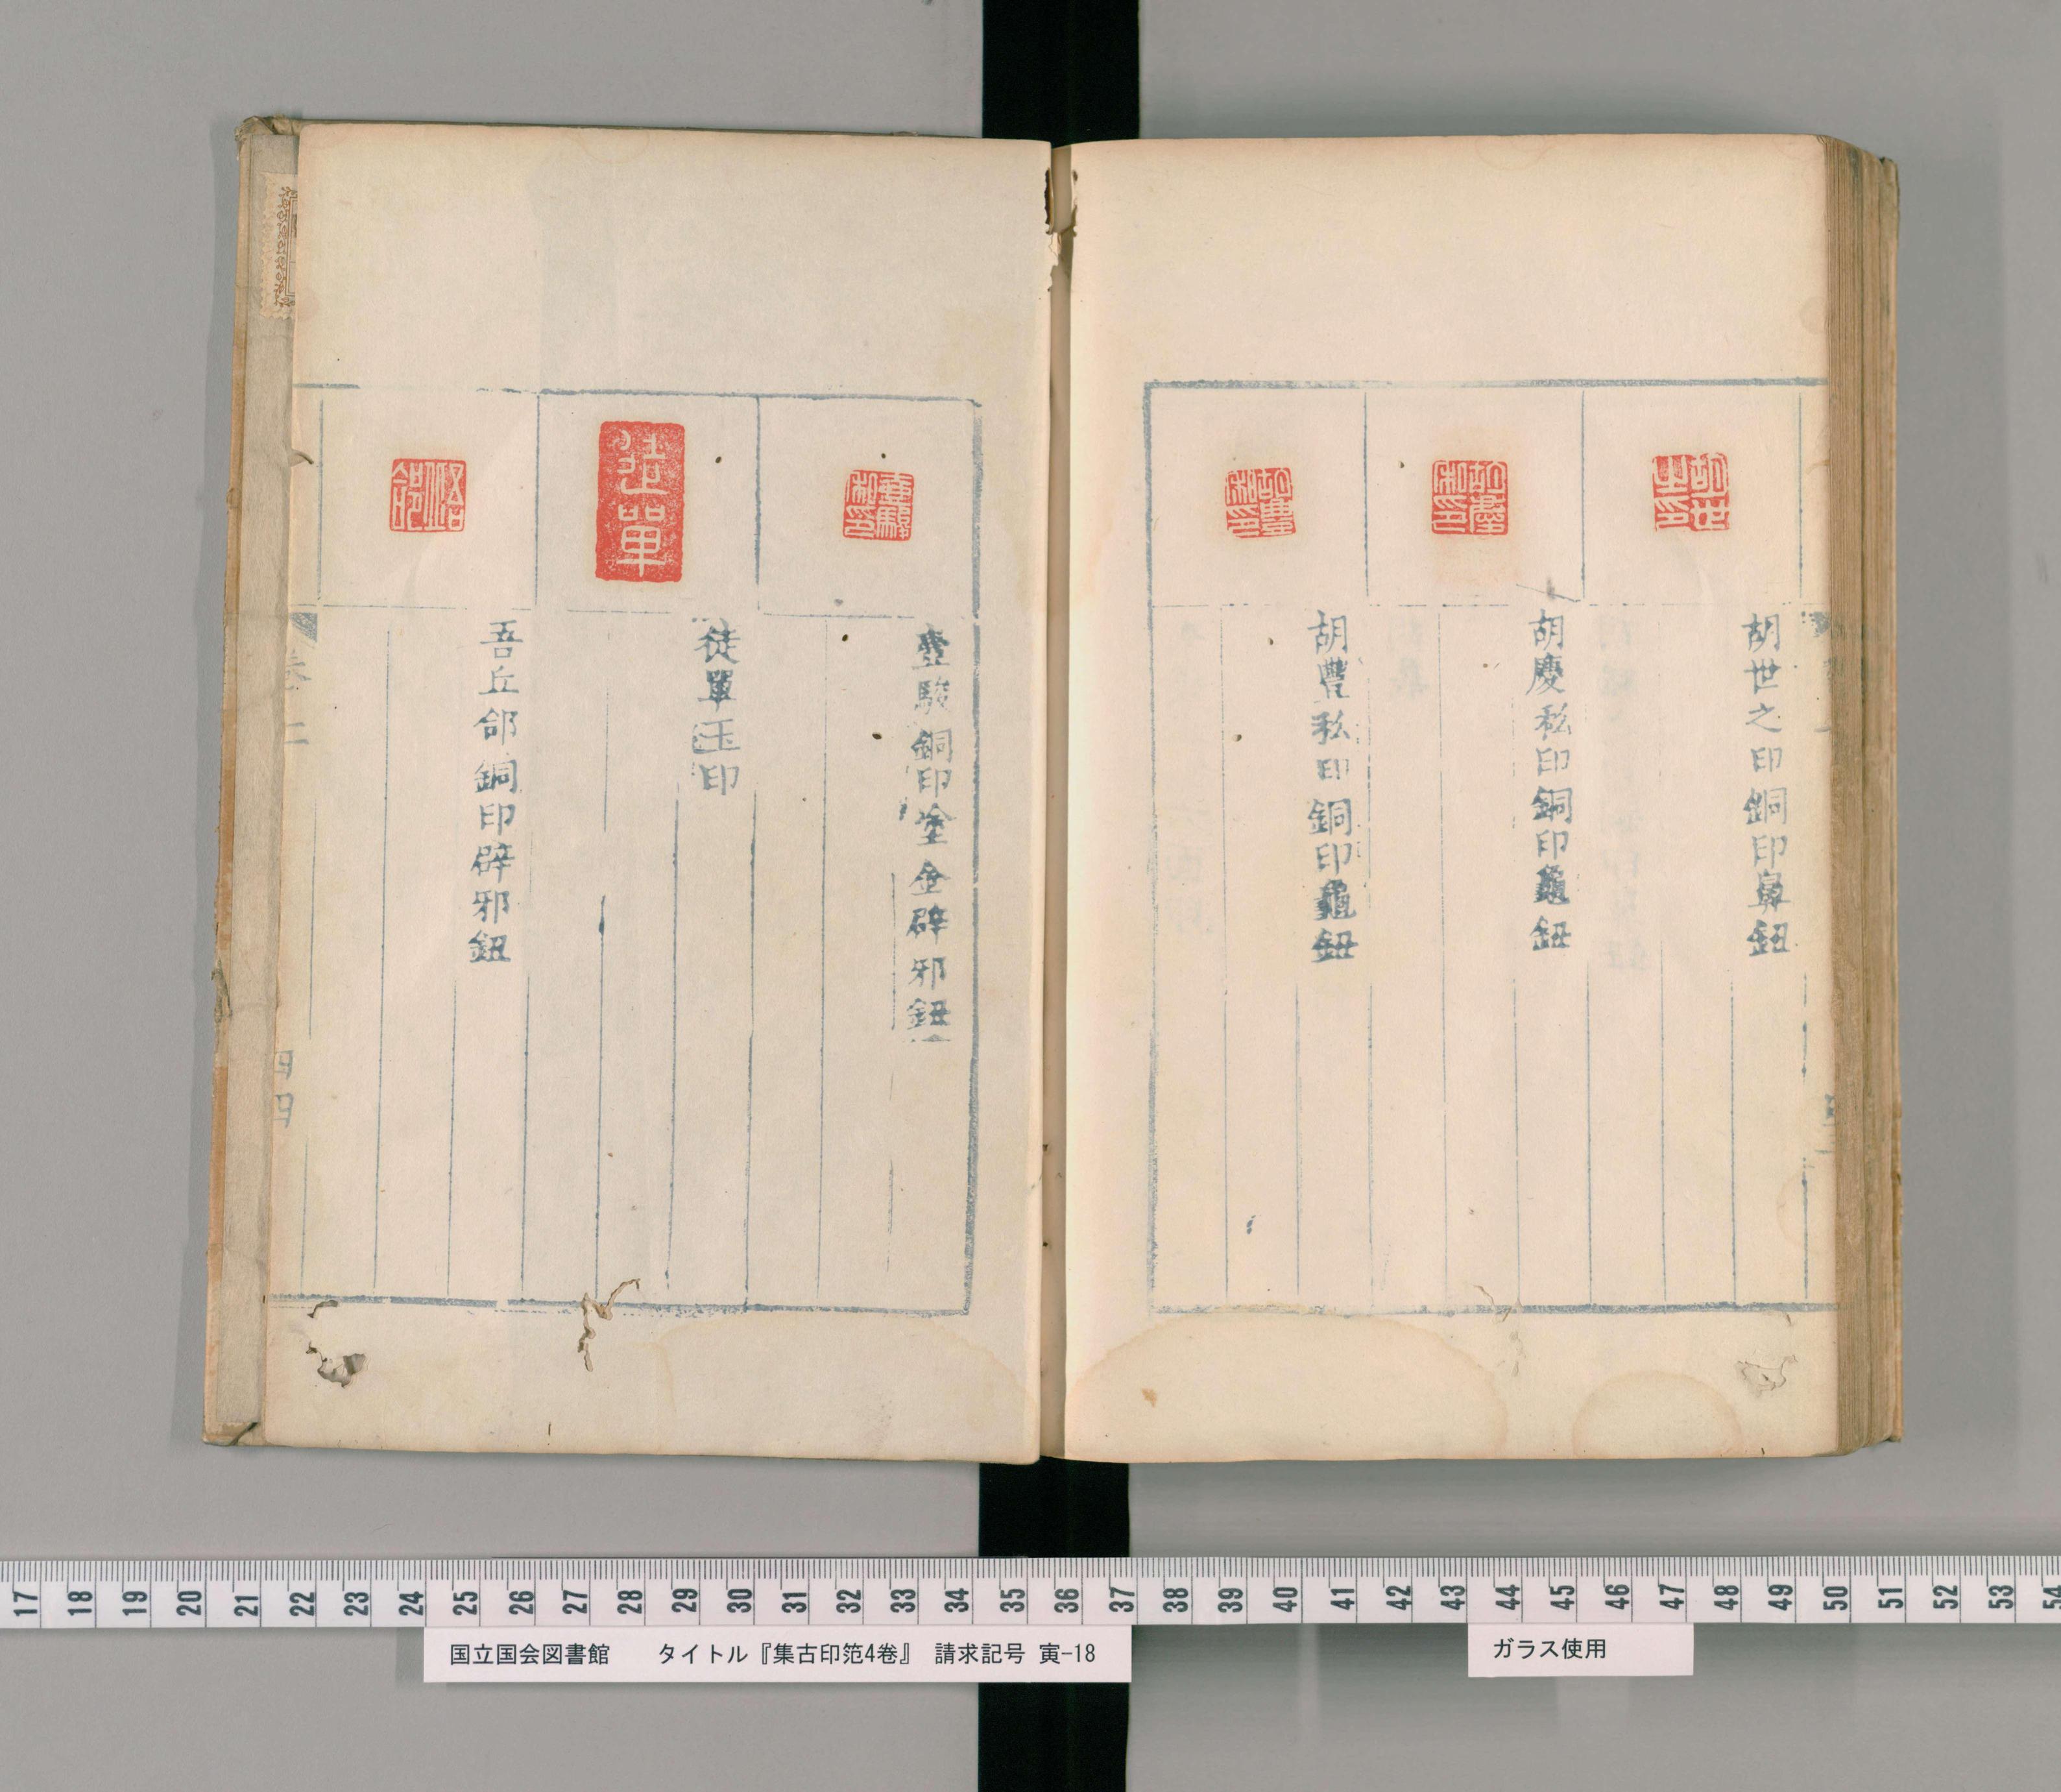 胡世之印銅印鼻鈕
胡慶私印銅印龜鈕
胡豐私印銅印龜鈕
壹駿銅印塗金辟邪鈕
徒單玉印
吾丘郃銅印辟邪鈕
卷二
四四
17 18 19 20 21 22 23 24 25 26 27 28 29 30 31 32 33 34 35 36 37 38 39 40 41 42 43 44 45 46 47 48 49 50 51 52 53 54
国立国会図書館 タイトル『集古印笵4巻』 請求記号 寅-18
ガラス使用